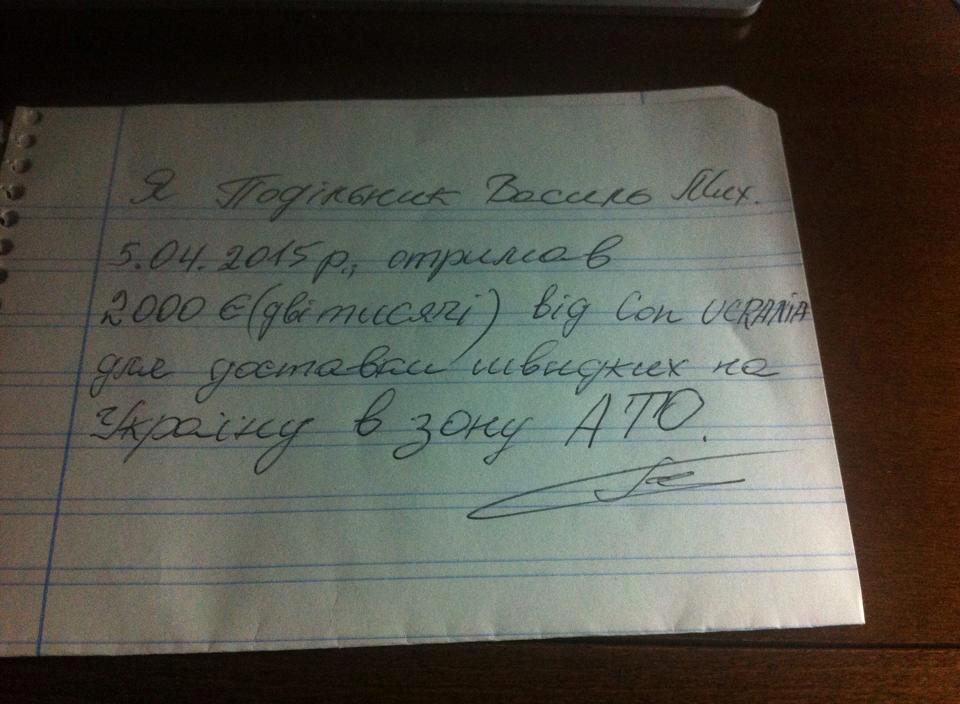 Я Подільник Василь Мих.
5.04.2015 р., отримав
2000 € (дві тисячі) від Con UCRANIA
для доставки швидких на
Україну в зону АТО.